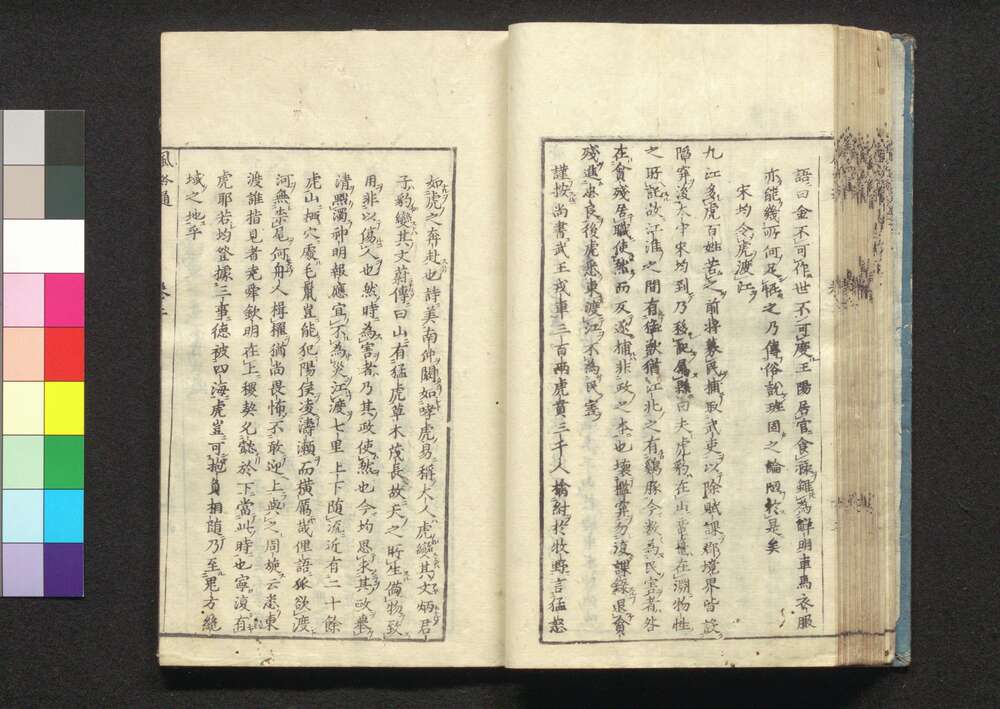 語曰金不可作世不可度王陽居官食祿雖為鮮明車馬衣服
亦能幾所何足怪之乃傳俗說班固之論陋於是矣
宋均令虎渡江
九江多虎百姓苦之前將募民捕取武吏以除賦課郡境界皆設
陷穽後太守宋均到乃移記屬縣曰夫虎豹在山黿鼉在淵物性
之所託故江淮之間有猛獸猶江北之有鷄豚今數為民害者咎
在貪殘居職使然而反逐捕非政之本也壞檻穽勿復課錄退貪
殘進忠良後虎悉東渡江不為民害
謹按尚書武王戎車三百兩虎賁三千人擒紂於牧野言猛怒
如虎之奔赴也詩美南仲闞如哮虎易稱大人虎變其文炳君
子豹變其文蔚傳曰山有猛虎草木茂長故天之所生備物致
用非以傷人也然時為害者乃其政使然也今均思求其政舉
清黜濁神明報應宜不為災江渡七里上下随流近有二十餘
虎山栖穴處毛鬣豈能犯陽侯凌濤瀬而橫厲哉俚語狐欲渡
河無柰尾何舟人楫櫂猶尚畏怖不敢迎上與之周旋云悉東
渡誰指見者堯舜欽明在上稷契允懿於下當此時也寧復有
虎耶若均登據三事德被四海虎豈可抱負相随乃至鬼方絶
域之地乎